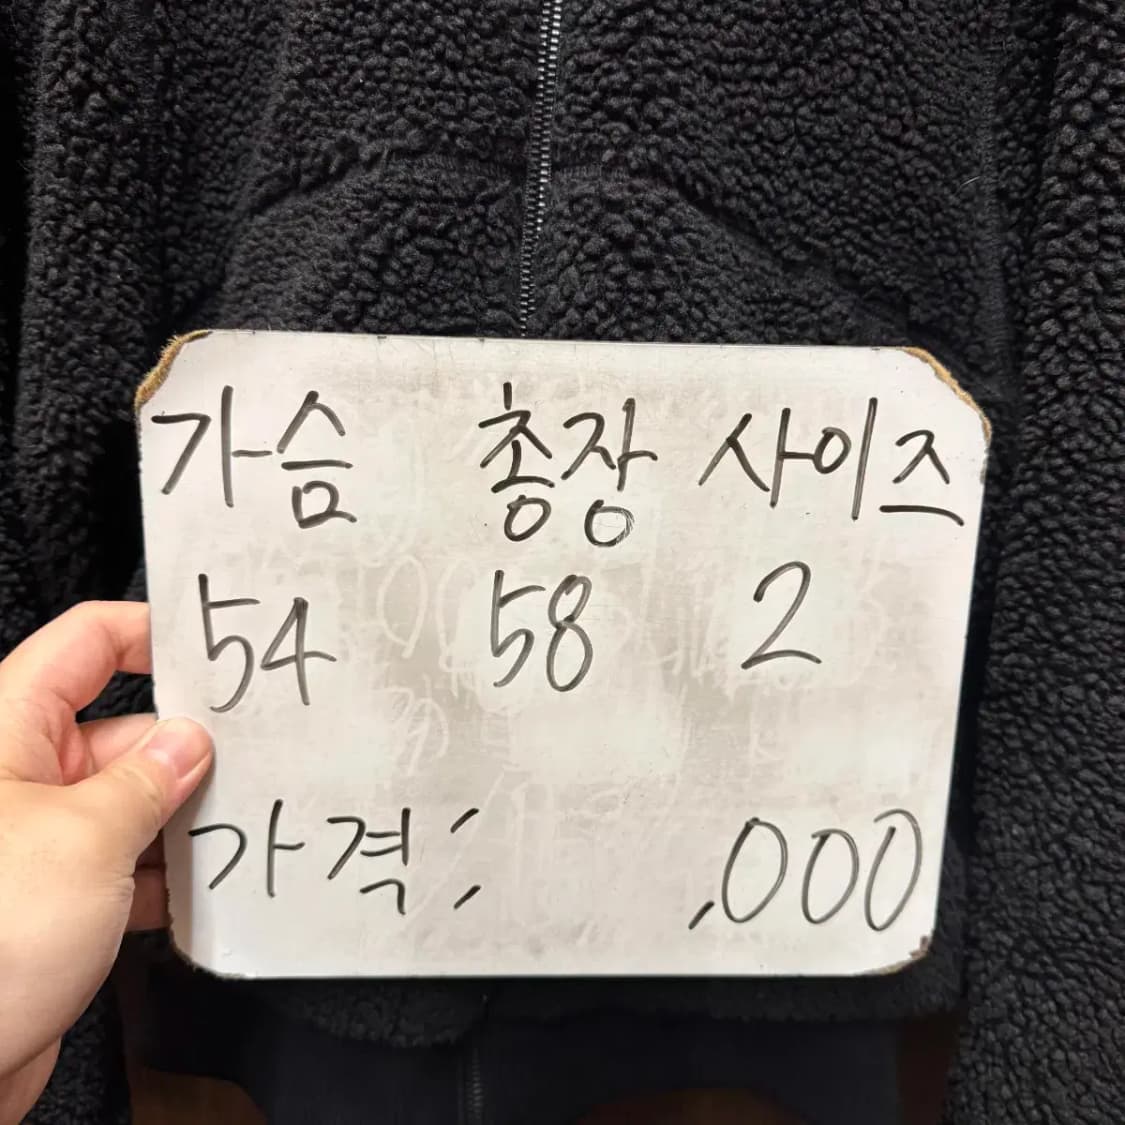 가슴 총장 사이즈
54 58 2
가격: ,000